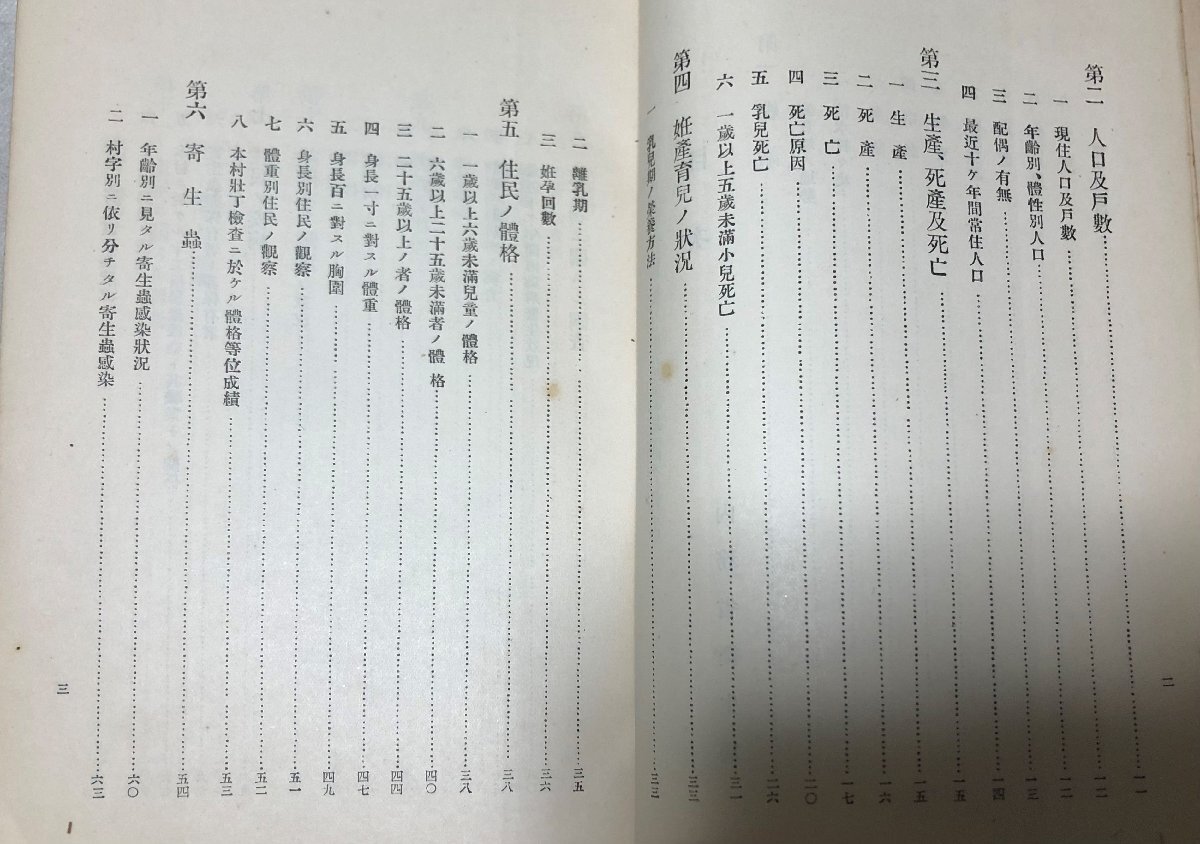 第二 人口及戶數…………一一
一 現住人口及戶數…………一二
二 年齡別、體性別人口…………一二
三 配偶ノ有無…………一三
四 最近十ケ年間常住人口…………一四
第三 生產、死產及死亡…………一五
一 生產…………一五
二 死產…………一六
三 死亡…………一七
四 死亡原因…………二〇
五 乳兒死亡…………二六
六 一歲以上五歲未滿小兒死亡…………三一
第四 姙產育兒ノ狀況…………三三
一 乳兒期ノ榮養方法…………三三
二
二 離乳期…………三五
三 姙孕回數…………三六
第五 住民ノ體格…………三八
一 一歲以上六歲未滿兒童ノ體格…………三八
二 六歲以上二十五歲未滿者ノ體格…………四〇
三 二十五歲以上ノ者ノ體格…………四四
四 身長一寸ニ對スル體重…………四七
五 身長百ニ對スル胸圍…………四九
六 身長別住民ノ觀察…………五一
七 體重別住民ノ觀察…………五二
八 本村壯丁檢查ニ於ケル體格等位成績…………五三
第六 寄生蟲…………五四
一 年齡別ニ見タル寄生蟲感染狀況…………六〇
二 村字別ニ依リ分チタル寄生蟲感染…………六三
三